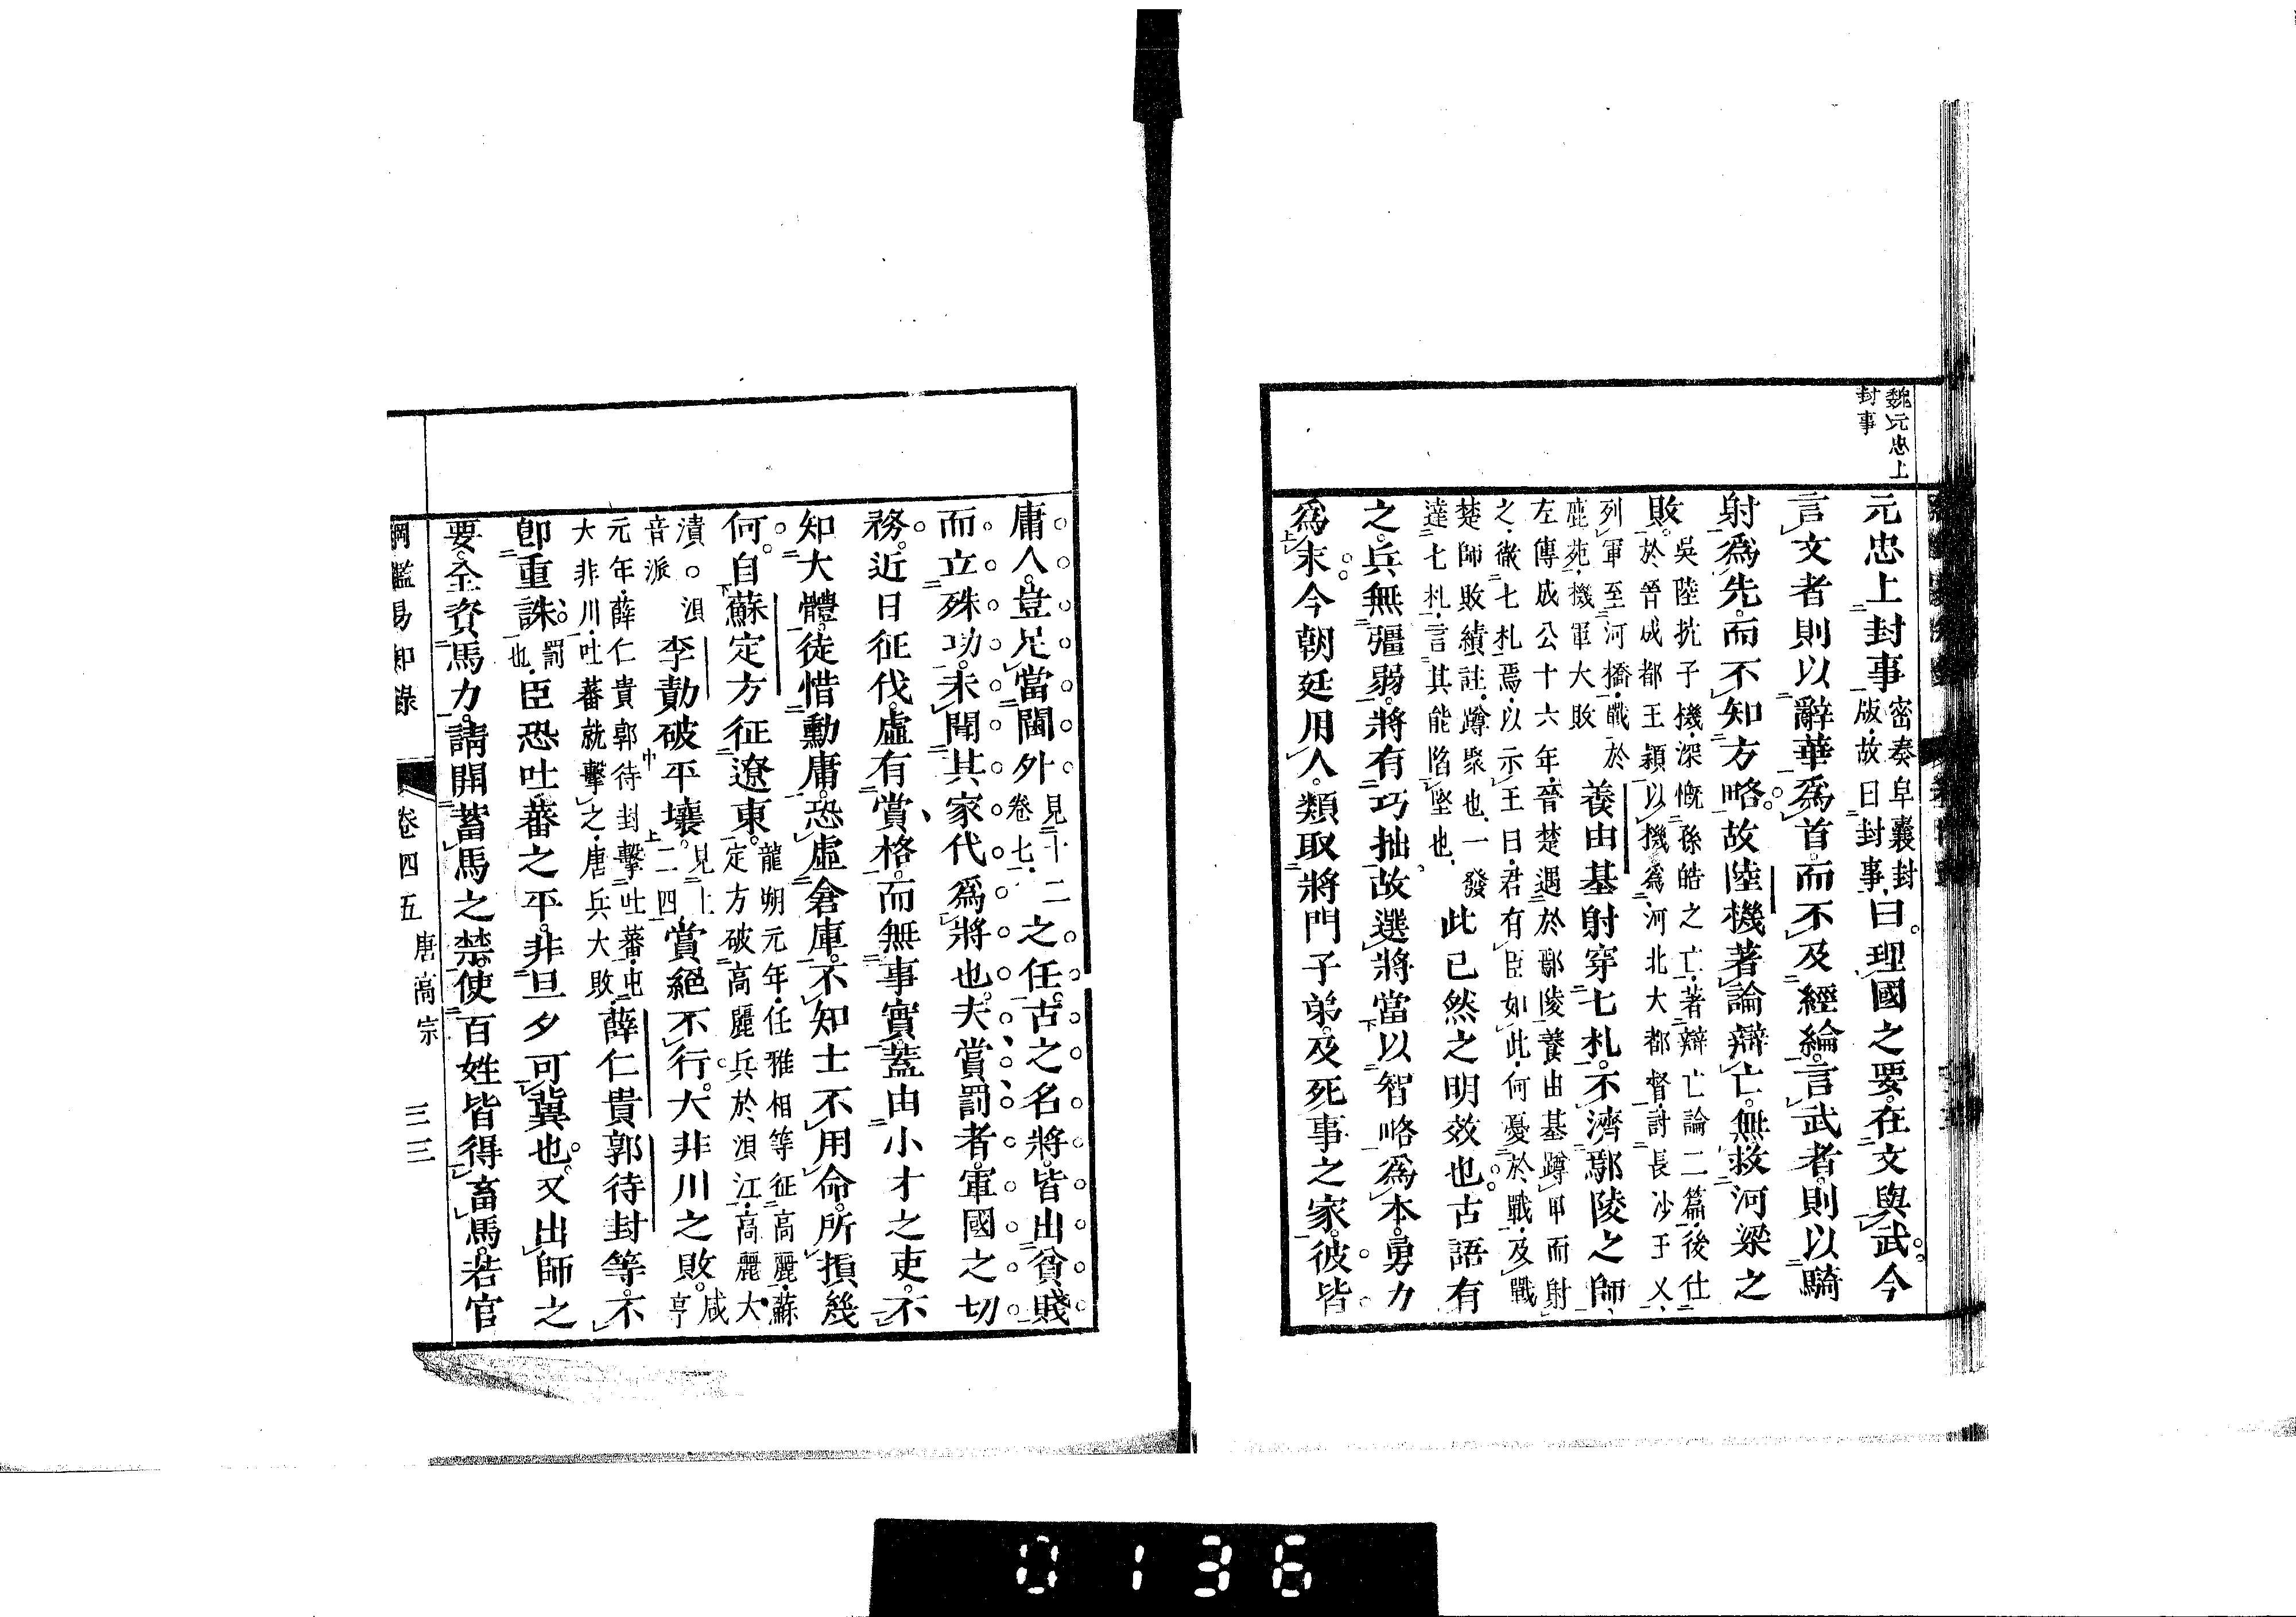 魏元忠上
封事
元忠上封事密奏阜囊封
版故曰封事曰理國之要在文與武今
言文者則以辭華爲首而不及經綸言武者則以騎
射爲先而不知方略故陸機著論辯亡無救河梁之
敗吳陸抗子機深慨孫皓之亡著辯亡論二篇後仕
於晉成都王穎以機爲河北大都督討長沙王乂
列軍至河橋戰於
鹿苑機軍大敗養由基射穿七札不濟鄢陵之師
左傳成公十六年晉楚遇於鄢陵養由基蹲甲而射
之徹七札焉以示王曰君有臣如此何憂於戰及戰
楚師敗績註蹲聚也一發
達七札言其能陷堅也此已然之明效也古語有
之兵無彊弱將有巧拙故選將當以智略爲本勇力
爲末今朝廷用人類取將門子弟及死事之家彼皆
庸人豈足當閫外見十二
卷七之任古之名將皆出貧賤
而立殊功未聞其家代爲將也夫賞罰者軍國之切
務近日征伐虛有賞格而無事實蓋由小才之吏不
知大體徒惜勳庸恐虛倉庫不知士不用命所損幾
何自蘇定方征遼東龍朔元年任雅相等征高麗蘇
定方破高麗兵於浿江高麗大
潰○浿
音派李勣破平壤見上
二四賞絕不行大非川之敗咸
亨
元年薛仁貴郭待封擊吐蕃屯
大非川吐蕃就擊之唐兵大敗薛仁貴郭待封等不
卽重誅罰
也臣恐吐蕃之平非旦夕可冀也又出師之
要全資馬力請開蓄馬之禁使百姓皆得畜馬若官
綱鑑易知錄 卷四五 唐高宗 三三
0136